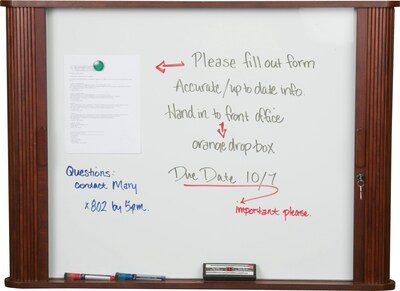 Please fill out form
Accurate/up to date info.
Hand in to front office
orange drop box
Due Date 10/7
important please.
Questions:
contact Mary
x802 by 5pm.